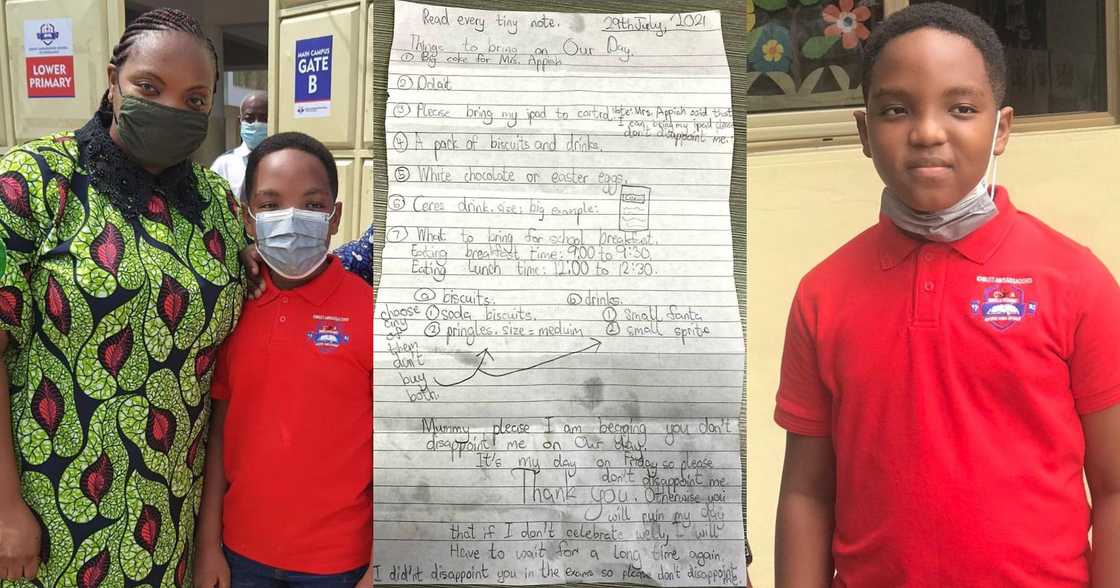 LOWER
PRIMARY
MAIN CAMPUS
GATE
B
Read every tiny note. 29th July, 2021
Things to bring on Our Day.
① Big cake for Mrs. Appiah
②
③ Please bring my ipad to Note: Mrs. Appiah said that
I can bring my ipad
don't disappoint me.
④ A park of biscuits and drinks.
⑤ White chocolate or easter eggs.
⑥ Ceres drink. size: big example:
⑦ What to bring for school breakfast.
Eating breakfast time: 9:00 to 9:30.
Eating lunch time: 12:00 to 12:30.
ⓐ biscuits. ⓑ drinks.
① soda biscuits. ① small fanta
② pringles. size = meduim ② small sprite
choose
of
them
don't
buy
both.
Mummy please I am begging you don't
disappoint me on Our day.
It's my day on Friday so please
don't disappoint me
Thank You. Otherwise you
will ruin my day
that if I don't celebrate well, I will
Have to wait for a long time again.
I did'nt disappoint you in the exams so please don't disappoint